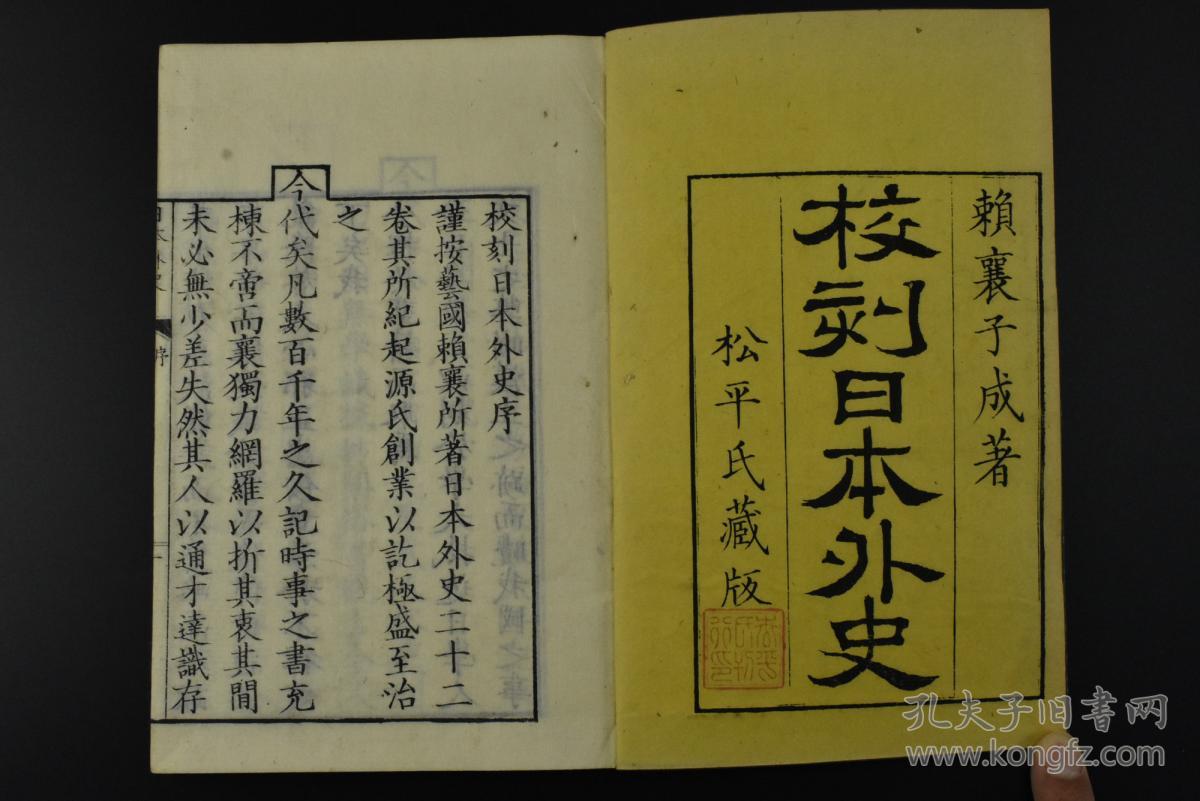 賴襄子成著
校刻日本外史
松平氏藏版
校刻日本外史序
謹按藝國賴襄所著日本外史二十二
卷其所紀起源氏創業以訖極盛至治
之
今代矣凡數百千年之久記時事之書充
棟不啻而襄獨力網羅以折其衷其間
未必無少差失然其人以通才達識存
序
一
孔夫子旧书网
www.kongfz.com